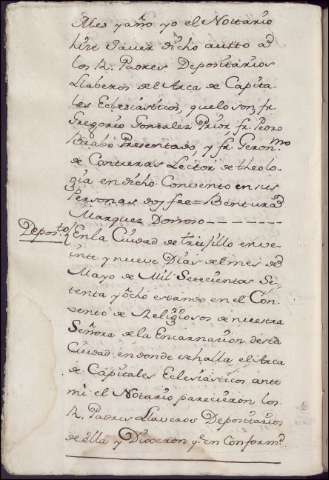 Mes y año yo el Notario
hize saver dicho autto a
los R. Padres Depositarios
Llaberos del Arca de Capita
les Eclesiásticos, que lo son fr
Gregorio Gonzalez Prior fr Pedro
Brabo Presentado, y fr Geronmo
de Contreras Lector de theolo
gia en dicho Convento en sus
Personas doy fee = Bentura
Marquez Donoso
Deposto/ En la Ciudad de Trujillo en ve
inte y nueve Dias del mes de
Mayo de Mil Settecientos Se
tenta y ocho estando en el Con
vento de Religiosos de nuestra
Señora de la Encarnazion de esta
Ciudad, en donde se halla el Arca
de Capitales Eclesiásticos ante
mi el Notario parecieron los
R. Padres Llaveros Depositarios
de ella y Dixeron qe en Conformd